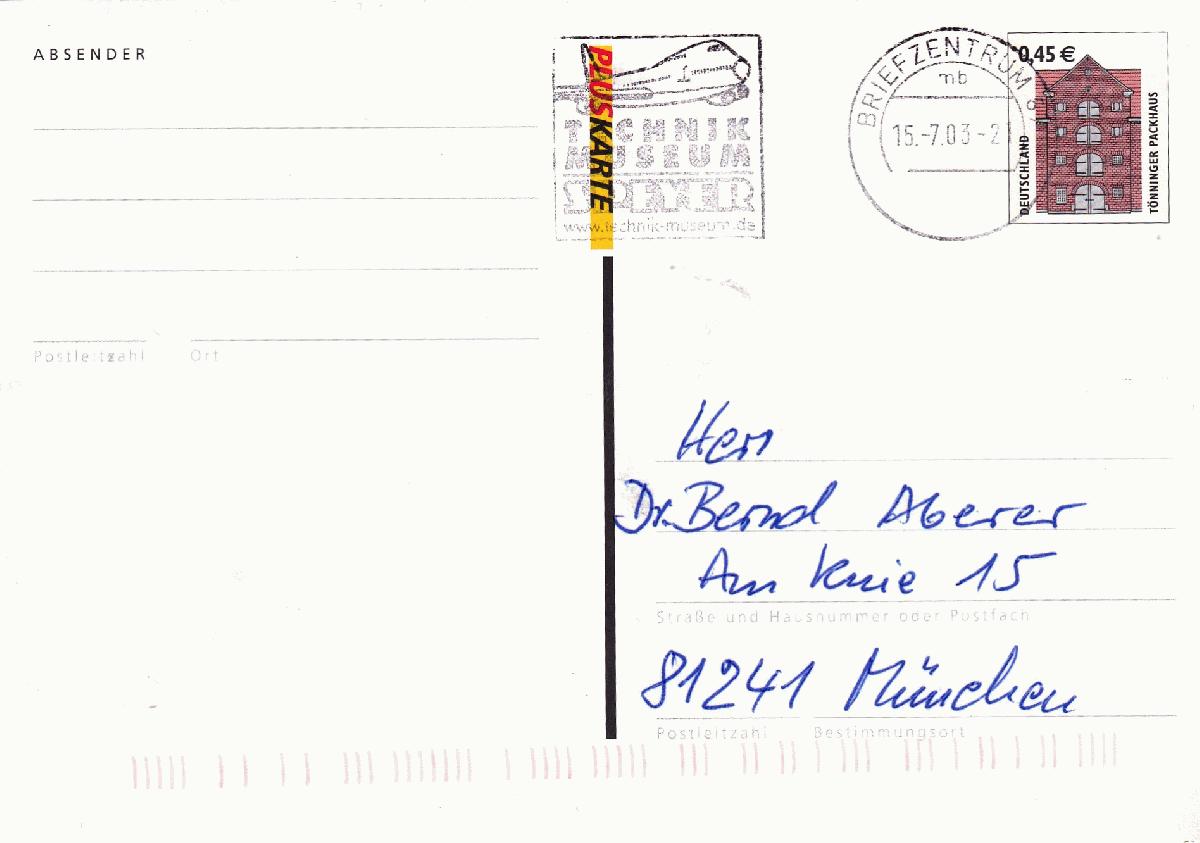 ABSENDER
Postleitzahl Ort
PAUSKARTE
TECHNIK
MUSEUM
SPEYER
www.technik-museum.de
BRIEFZENTRUM
mb
15.-7.03-21
0,45 €
DEUTSCHLAND
TÖNNINGER PACKHAUS
Herrn
Dr. Bernd Aberer
Am Knie 15
Straße und Hausnummer oder Postfach
81241 München
Postleitzahl Bestimmungsort